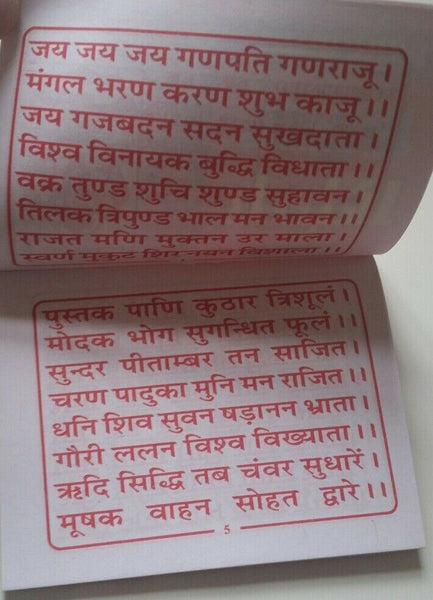 जय जय जय गणपति गणराजू।
मंगल भरण करण शुभ काजू।।
जय गजबदन सदन सुखदाता।
विश्व विनायक बुद्धि विधाता।।
वक्र तुण्ड शुचि शुण्ड सुहावन।
तिलक त्रिपुण्ड भाल मन भावन।।
राजत मणि मुक्तन उर माला।
स्वर्ण मुकुट शिर नयन विशाला।।
पुस्तक पाणि कुठार त्रिशूलं।
मोदक भोग सुगन्धित फूलं।।
सुन्दर पीताम्बर तन साजित।
चरण पादुका मुनि मन राजित।।
धनि शिव सुवन षड़ानन भ्राता।
गौरी ललन विश्व विख्याता।।
ऋदि सिद्धि तब चंवर सुधारें।
मूषक वाहन सोहत द्वारे।।
5